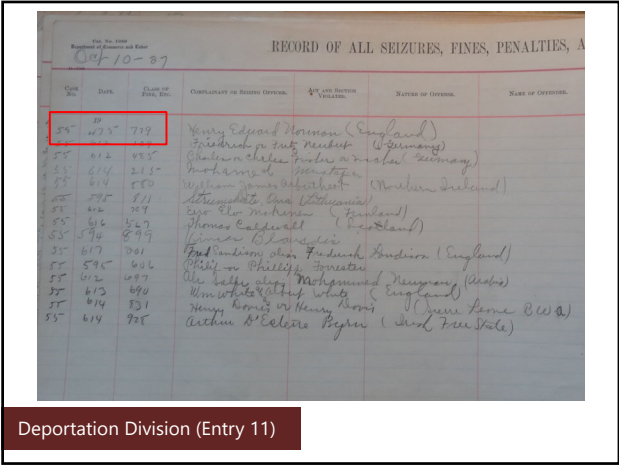 Cat. No. 1060
Department of Commerce and Labor
Oct 10-37
RECORD OF ALL SEIZURES, FINES, PENALTIES, A
Case No. Date. Class of Fine, Etc. Complainant or Seizing Officer. Act and Section Violated. Nature of Offense. Name of Offender.
19
55 475 779 Henry Edward Norman (England)
55 612 Friedrich or Fritz Neubert (Germany)
55 612 Fisher or (Germany)
55 614 Mohamed
55 614 580 William James (Northern Ireland)
55 595 811 Ona (Lithuania)
55 612 Eero (Finland)
55 616 567 Thomas Caldwell (Scotland)
55 594 899
55 617 Fred Sandison alias Frederick Sandison (England)
55 595 646 Philip or Phillip Forrester
55 612 697 Ali Saleh alias Mohammed (Arabia)
55 613 690 Wm White & Albert White (England)
55 614 831 Henry Davies or Henry Davis (Sierra Leone BWA)
55 614 928 Arthur D'Esterre Byrne (Irish Free State)
Deportation Division (Entry 11)